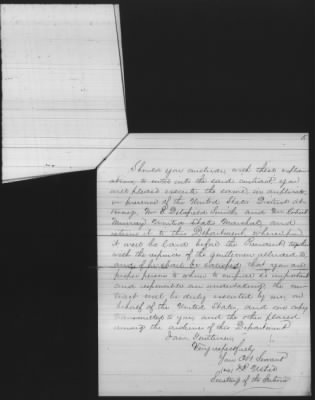 5
Should you conclude, with these explan
ations, to enter into the said contract you
will please execute the same in duplicate
in presence of the United States District At-
torney, Mr E. Delafield Smith, and Mr Robert
Murray United States Marshal, and
return it to this Department, whereupon
it will be laid before the President together
with the opinions of the gentlemen alluded to,
and if he shall be satisfied that you are
proper persons to whom to confide so important
and responsible an undertaking the con-
tract will be duly executed by me, on
behalf of the United States, and one copy
transmitted to you and the other placed
among the archives of this Department
I am Gentlemen
Very respectfully
Your Obt Servant
J. P. Usher
Secretary of the Interior